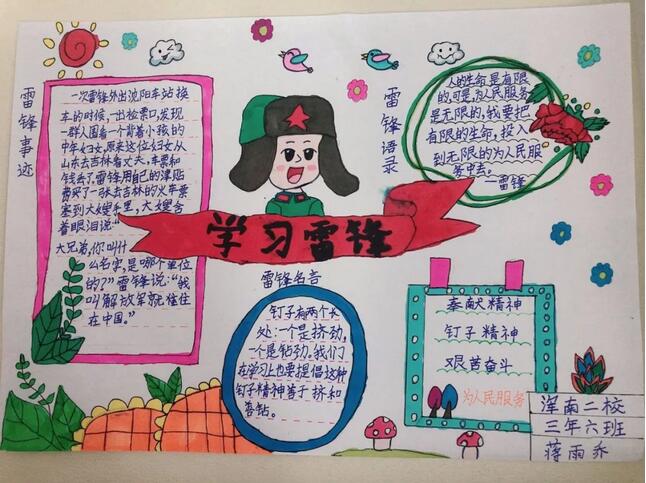 雷锋事迹
一次雷锋外出沈阳车站换
车的时候,一出检票口,发现
一群人围着一个背着小孩的
中年妇女,原来这位妇女从
山东去吉林看丈夫,车票和
钱丢了。雷锋用自己的津贴
费买了一张去吉林的火车票
塞到大嫂手里,大嫂含
着眼泪说:“
大兄弟,你叫什
么名字,是哪个单位
的?”雷锋说:“我
叫解放军,就住
在中国。”
学习雷锋
雷锋语录
人的生命是有限
的,可是,为人民服务
是无限的,我要把
有限的生命,投入
到无限的为人民服
务中去。
——雷锋
雷锋名言
钉子有两个长
处:一个是挤劲,
一个是钻劲。我们
在学习上也要提倡这种
钉子精神善于挤和
善钻。
奉献精神
钉子精神
艰苦奋斗
为人民服务
浑南二校
三年六班
蒋雨乔